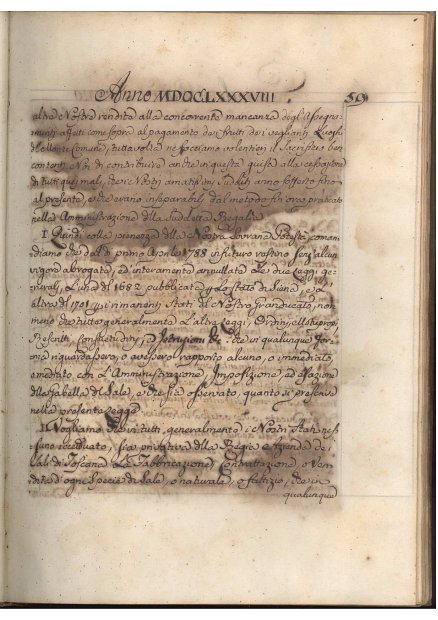 Anno MDCCLXXXVIII. 59
altra Nostra rendita alla concorrente mancanza degl'Assegna-
menti affetti come sopra al pagamento dei frutti dei veglianti Luoghi
di Monte Comune, tuttavolta ne facciamo volentieri il Sacrifizio ben
contenti Noi di contribuire anche in questa guisa alla cessazione
di tutti quei mali, che i Nostri amatissimi Sudditi anno sofferto fino
al presente, e che erano inseparabili dal metodo fin ora praticato
nella Amministrazione della suddetta Regalia
I. Quindi colla pienezza della Nostra Sovrana Potestà coman-
diamo che dal dì primo Aprile 1788 in futuro restino senz'alcun
vigore abrogate, ed interamente annullate le due Leggi ge-
nerali, l'una del 1682 pubblicata p lo Stato di Siena, e l'
altra del 1701 p i rimanenti Stati del Nostro Granducato, non
meno che tutte generalmente l'altre Leggi, Ordini,
Rescritti, Consuetudini, e Istruzioni &c. che in qualunque for-
ma riguardassero, o avessero rapporto alcuno, o immediato,
o mediato con l'Amministrazione, Imposizione, ed esazione
della Gabella del Sale, e che sia osservato, quanto si prescrive
nella presente Legge
II. Vogliamo che in tutti, generalmente i Nostri Stati nes-
suno eccettuato, sia privativa della Regia Azienda dei
Sali di Toscana la Fabbricazione, Contrattazione, o Ven-
dita d'ogni Specie di Sale, o naturale, o fattizio, che in
qualunque